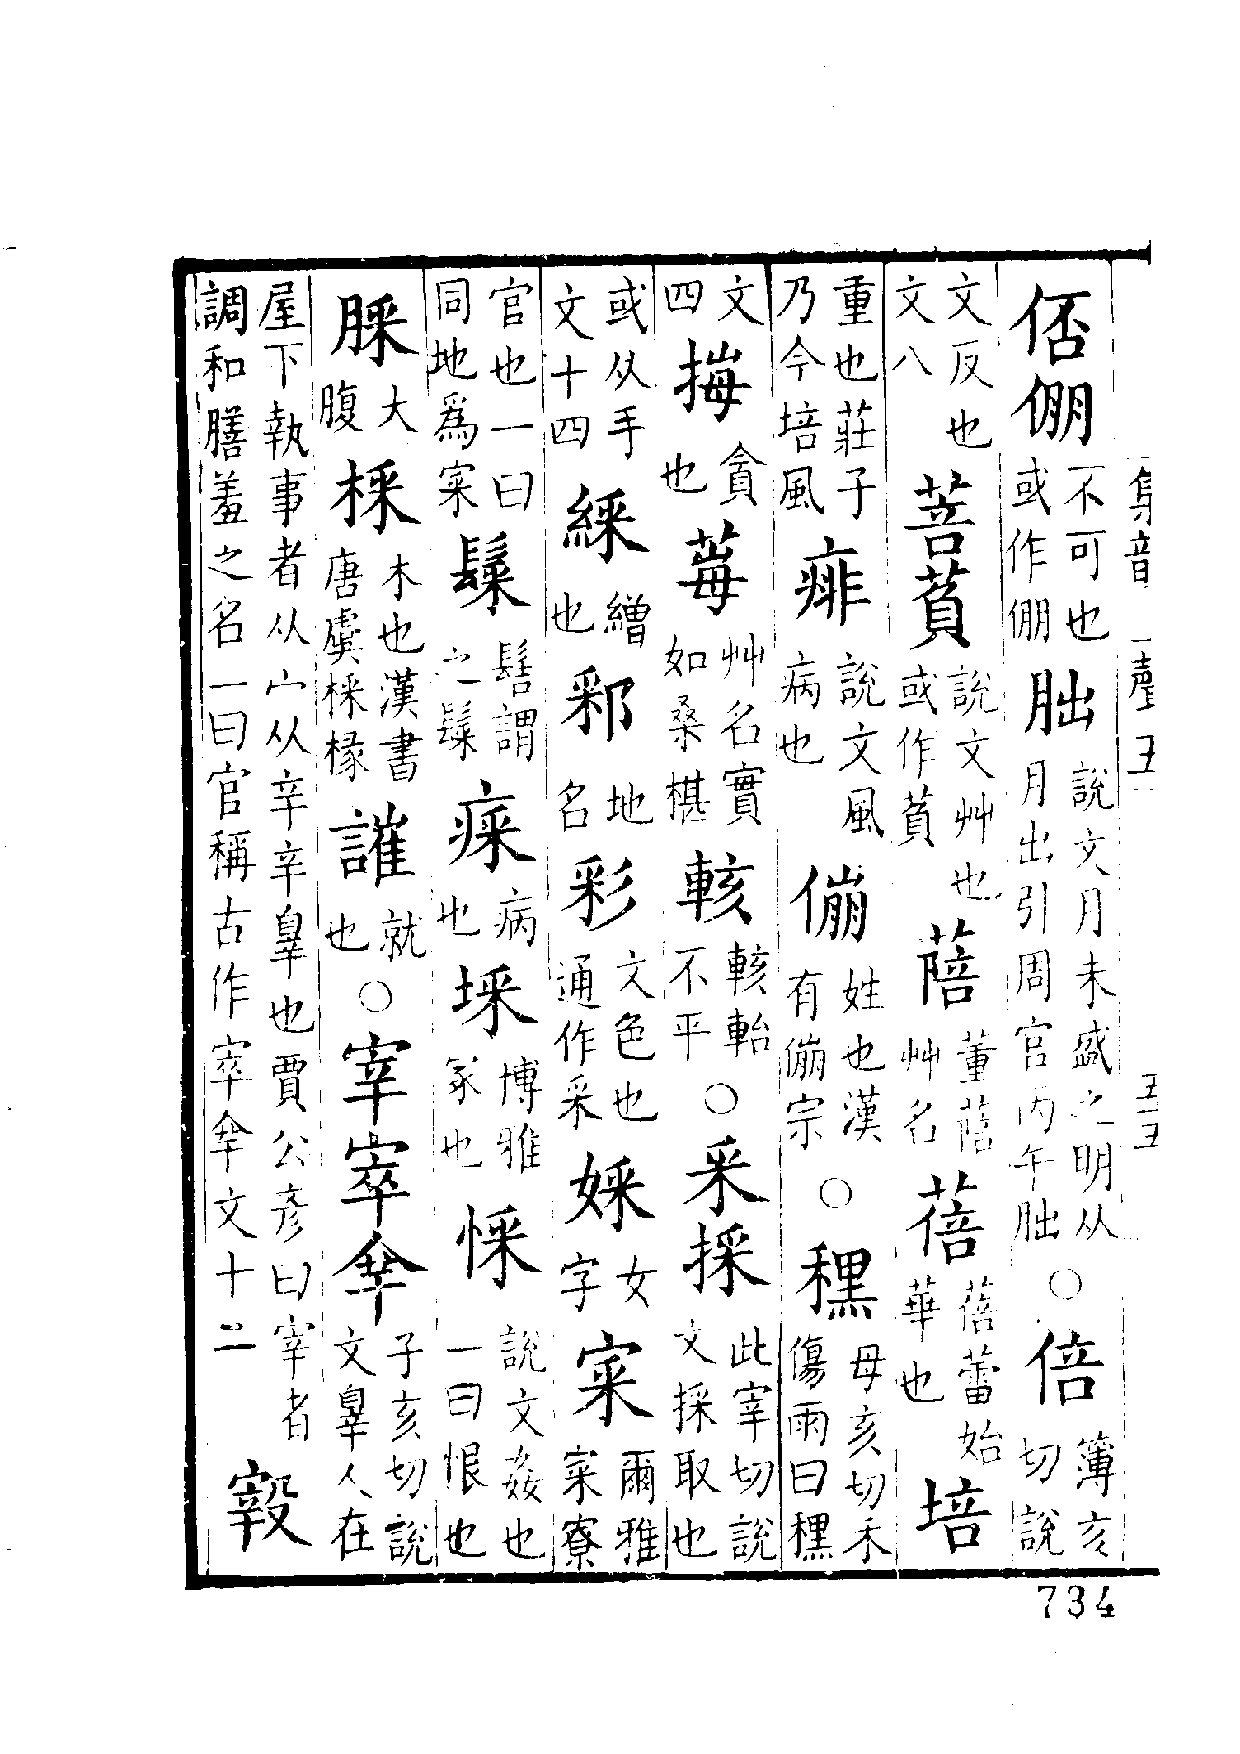 集音 上聲五 五十五
俖倗不可也或作倗朏說文月未盛之明从月出引周官丙午朏○倍簿亥切說
文反也文八菩萯說文艸也或作萯䔒董䔒艸名蓓蓓蕾始華也培
重也莊子乃今培風痱說文風病也傰姓也漢有傰宗○䆀母亥切禾傷雨曰䆀
文四挴貪也莓艸名實如桑椹輆輆軩不平○采採此宰切說文採取也
或从手文十四綵繒也地名彩文色也通作采婇女字寀爾雅寀寮
官也一曰同地爲寀髻謂之病也埰博雅冢也啋說文姦也一曰恨也
大腹棌木也漢書唐虞棌椽就也○宰子亥切說文辠人在
屋下執事者从宀从辛辛辠也賈公彥曰宰者調和膳羞之名一曰官稱古作文十二
734